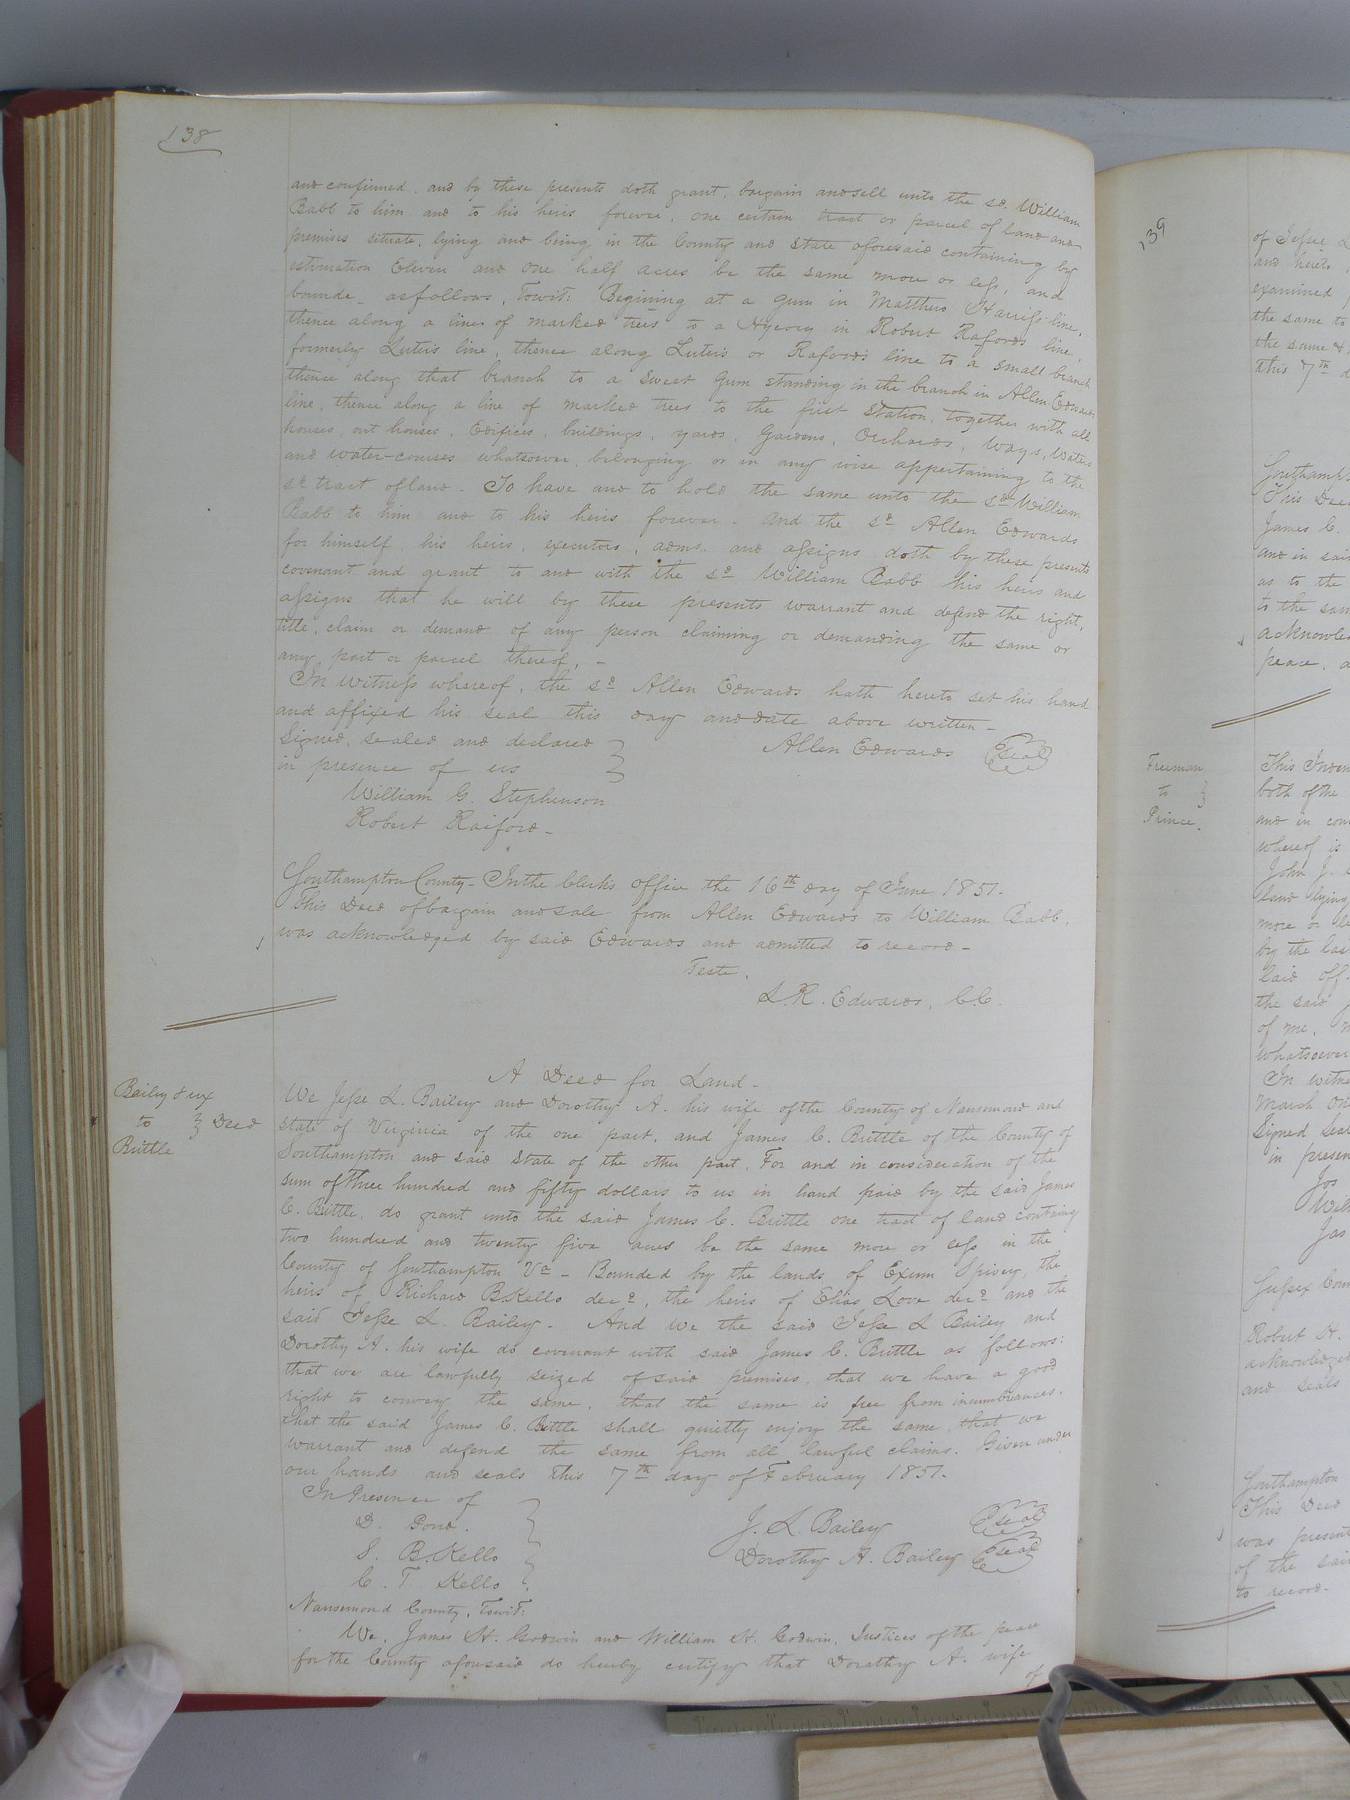 138
and confirmed, and by these presents doth grant, bargain and sell unto the sd. William
Babb to him and to his heirs forever, one certain tract or parcel of Land and
premises situate, lying and being in the County and State aforesaid containing by
estimation Eleven and one half acres be the same more or less, and
bounde_ as follows, Towit: Begining at a Gum in Matthew Harriss line,
thence along a line of marked trees to a Hycory in Robert Rafords line,
formerly Luters line, thence along Luters or Rafords line to a small branch
thence along that branch to a sweet Gum standing in the branch in Allen Edwards
line, thence along a line of marked trees to the first Station, together with all
houses, out houses, Edifices, buildings, yards, Gardens, Orchards, Ways, Waters
and water-courses whatsoever, belonging or in any wise appertaining to the
sd. tract of land. To have and to hold the same unto the sd. William
Babb to him and to his heirs forever. And the sd. Allen Edwards
for himself, his heirs, executors, adms. and assigns doth by these presents
covenant and grant to and with the sd. William Babb his heirs and
assigns that he will by these presents warrant and defend the right,
title, claim or demand of any person claiming or demanding the same or
any part or parcel thereof. -
In Witness whereof, the sd. Allen Edwards hath hereto set his hand
and affixed his seal this day and date above written -
Signed, sealed and declared
in presence of us
Allen Edwards Seal
William G. Stephenson
Robert Raiford -
Southampton County - In the Clerks office the 16th day of June 1851.
This Deed of bargain and sale from Allen Edwards to William Babb,
was acknowledged by said Edwards and admitted to record -
Teste,
L. R. Edwards, C.C.
Bailey & ux
to } Deed
Brittle
A Deed for Land -
We Jesse L. Bailey and Dorothy A. his wife of the County of Nansemond and
State of Virginia of the one part, and James C. Brittle of the County of
Southampton and said State of the other part. For and in consideration of the
sum of three hundred and fifty dollars to us in hand paid by the said James
C. Brittle, do grant unto the said James C. Brittle one tract of land containing
two hundred and twenty five acres be the same more or less in the
County of Southampton Va - Bounded by the lands of Exum Spivey, the
heirs of Richard B. Kello decd., the heirs of Elias Love decd. and the
said Jesse L. Bailey - And we the said Jesse L Bailey and
Dorothy A. his wife do covenant with said James C. Brittle as follows:
that we are lawfully seized of said premises, that we have a good
right to convey the same, that the same is free from incumbrances,
that the said James C. Brittle shall quietly enjoy the same, that we
warrant and defend the same from all lawful claims. Given under
our hands and seals this 7th day of February 1851.
In Presence of
D. Pond.
S. B. Kello
C. T. Kello
J. L. Bailey Seal
Dorothy A. Bailey Seal
Nansemond County, Towit:
We, James H. Godwin and William H. Godwin, Justices of the peace
for the County aforesaid do hereby certify that Dorothy A. wife
of
139
of Jesse L
and heret
examined
the same to
the same &
this 7th d
Southamp
This Deed
James C.
and in said
as to the
to the sam
acknowle
peace, a
Freeman
to }
Prince.
This Inden
both of the
and in con
whereof is
John J.
land lying
more or le
by the las
laid off
the said
of me,
whatsoever
In witne
March On
Signed Seal
in presen
Jos
Will
Jas
Sussex Coun
Robert H.
acknowledged
and seals
Southampton
This Deed
was present
of the said
to record -